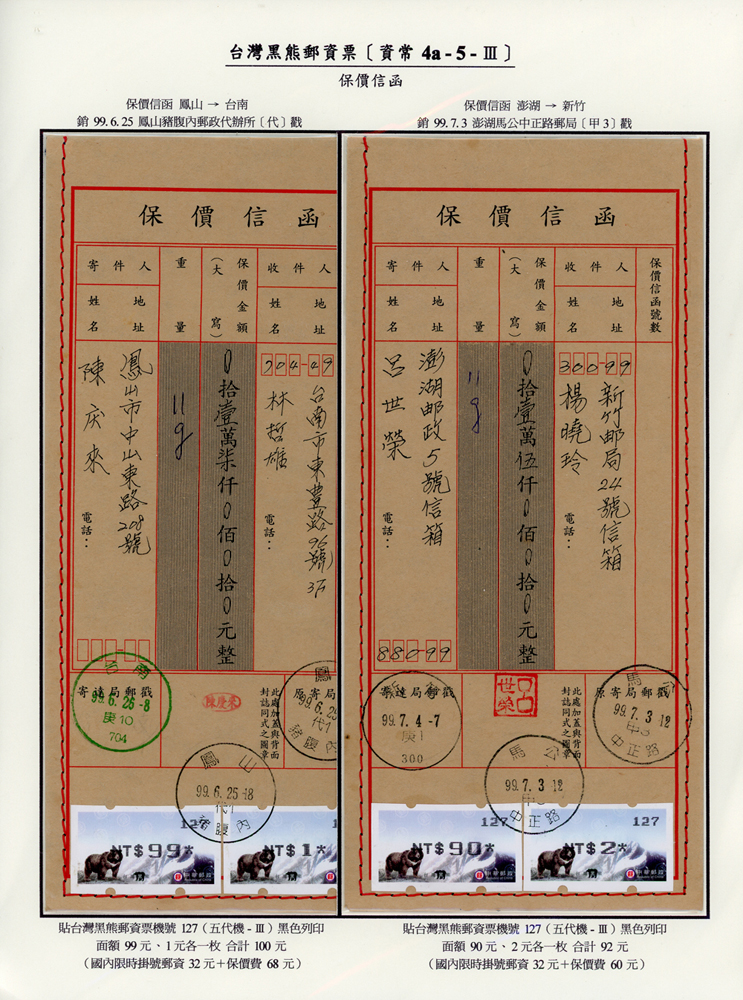 台灣黑熊郵資票〔資常 4a - 5 - III〕
保價信函
保價信函 鳳山 → 台南
銷 99.6.25 鳳山豬腹內郵政代辦所〔代〕戳
保價信函
寄件人
姓名
地址
重量
保價金額
（大寫）
收件人
姓名
地址
陳庆來
鳳山市中山東路208號
電話：
11g
0拾壹萬柒仟0佰0拾0元整
704-49
台南市東豊路96號3F
林哲雄
電話：
寄達局郵戳
此處加蓋與背面封誌同式之圖章
原寄局郵戳
台南
99.6.26-8
庚10
704
陳慶來
鳳
99.6.25
代1
豬腹內
鳳山
99.6.25-18
代1
豬腹內
127
NT$99*
中華郵政
NT$1*
中華郵政
保價信函 澎湖 → 新竹
銷 99.7.3 澎湖馬公中正路郵局〔甲3〕戳
保價信函
寄件人
姓名
地址
重量
保價金額
（大寫）
收件人
姓名
地址
保價信函號數
呂世榮
澎湖邮政5號信箱
電話：
880-99
11g
0拾壹萬伍仟0佰0拾0元整
300-99
新竹邮局24號信箱
楊曉玲
電話：
寄達局郵戳
此處加蓋與背面封誌同式之圖章
原寄局郵戳
99.7.4-7
300
呂世榮
馬公
99.7.3-12
中正路
馬公
99.7.3-12
中正路
127
NT$90*
中華郵政
127
NT$2*
中華郵政
貼台灣黑熊郵資票機號 127（五代機 - III）黑色列印
面額 99 元、1 元各一枚 合計 100 元
（國內限時掛號郵資 32 元＋保價費 68 元）
貼台灣黑熊郵資票機號 127（五代機 - III）黑色列印
面額 90 元、2 元各一枚 合計 92 元
（國內限時掛號郵資 32 元＋保價費 60 元）